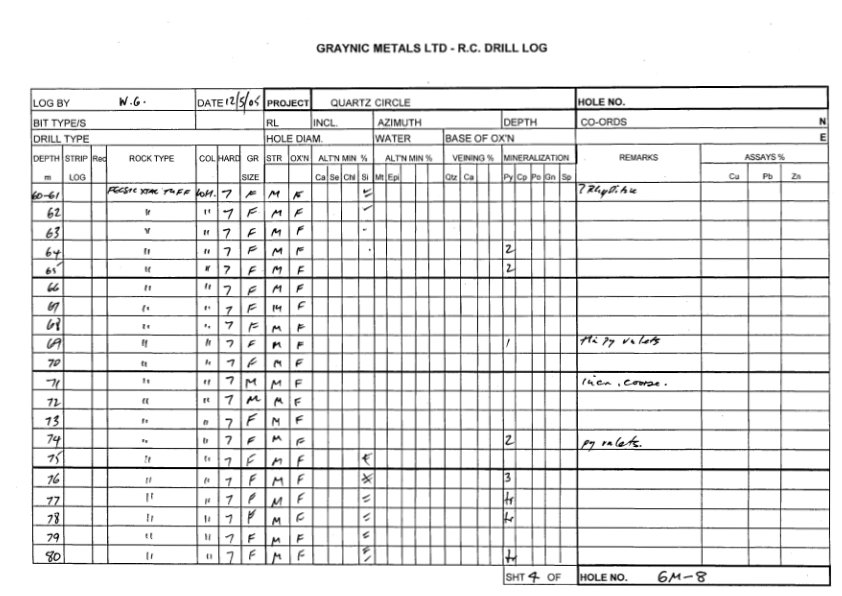 GRAYNIC METALS LTD - R.C. DRILL LOG
LOG BY W.G. DATE 12/5/05 PROJECT QUARTZ CIRCLE HOLE NO.
BIT TYPE/S RL INCL. AZIMUTH DEPTH CO-ORDS N
DRILL TYPE HOLE DIAM. WATER BASE OF OX'N E
DEPTH STRIP Rec ROCK TYPE COL HARD GR STR OX'N ALT'N MIN % ALT'N MIN % VEINING % MINERALIZATION REMARKS ASSAYS %
m LOG SIZE Ca Se Chl Si Mt Epi Qtz Ca Py Cp Po Gn Sp Cu Pb Zn
60-61 FELSIC XTAL TUFF 7 F M F
62 " " 7 F M F
63 " " 7 F M F
64 " " 7 F M F 2
65 " " 7 F M F 2
66 " " 7 F M F
67 " " 7 F M F
68 " " 7 F M F
69 " " 7 F M F 1 py vnlets
70 " " 7 F M F
71 " " 7 M M F incr. coarse.
72 " " 7 M M F
73 " " 7 F M F
74 " " 7 F M F 2 py vnlets.
75 " " 7 F M F
76 " " 7 F M F 3
77 " " 7 F M F tr
78 " " 7 F M F tr
79 " " 7 F M F
80 " " 7 F M F tr
SHT 4 OF HOLE NO. GM-8